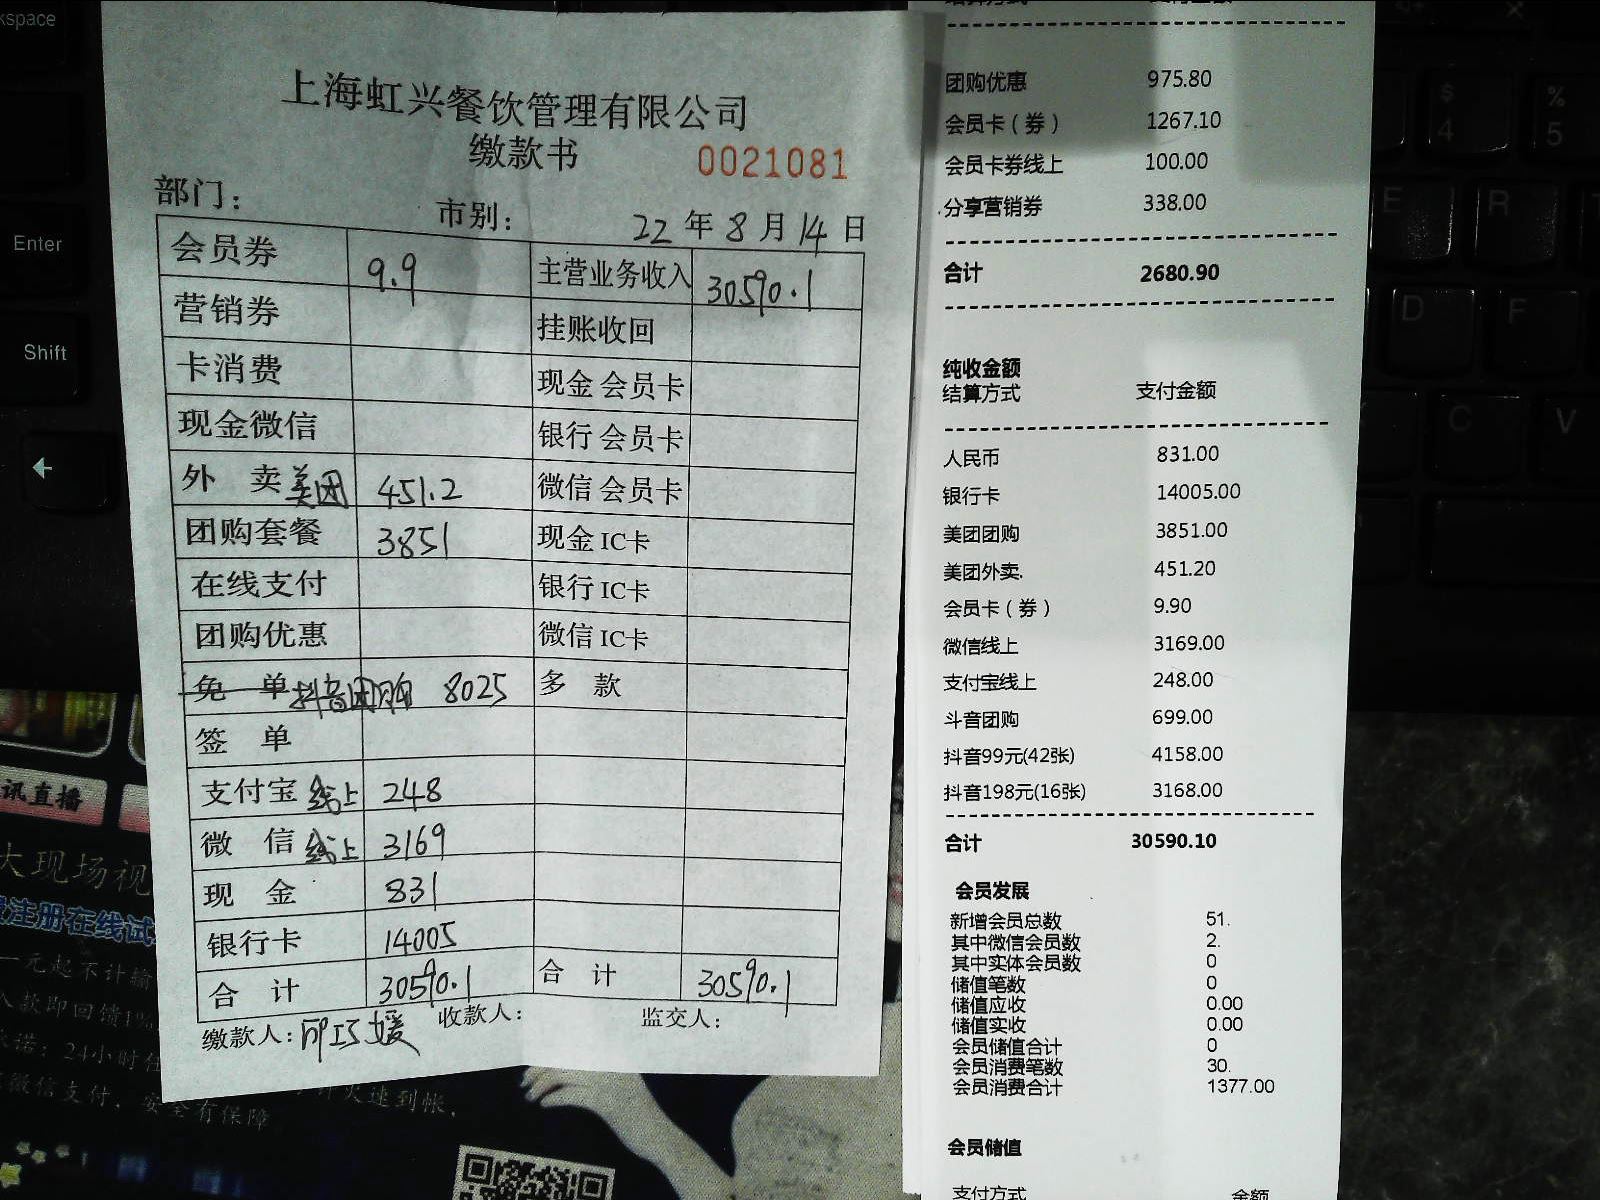 上海虹兴餐饮管理有限公司
缴款书 0021081
部门： 市别： 22 年 8 月 14 日
会员券 9.9 主营业务收入 30590.1
营销券 挂账收回
卡消费 现金会员卡
现金微信 银行会员卡
外 卖 美团 451.2 微信会员卡
团购套餐 3851 现金IC卡
在线支付 银行IC卡
团购优惠 微信IC卡
免 单 抖音团购 8025 多 款
签 单
支付宝 线上 248
微 信 线上 3169
现 金 831
银行卡 14005
合 计 30590.1 合 计 30590.1
缴款人： 收款人： 监交人：
团购优惠 975.80
会员卡（券） 1267.10
会员卡券线上 100.00
分享营销券 338.00
合计 2680.90
纯收金额
结算方式 支付金额
人民币 831.00
银行卡 14005.00
美团团购 3851.00
美团外卖. 451.20
会员卡（券） 9.90
微信线上 3169.00
支付宝线上 248.00
斗音团购 699.00
抖音99元(42张) 4158.00
抖音198元(16张) 3168.00
合计 30590.10
会员发展
新增会员总数 51.
其中微信会员数 2.
其中实体会员数 0
储值笔数 0
储值应收 0.00
储值实收 0.00
会员储值合计 0
会员消费笔数 30.
会员消费合计 1377.00
会员储值
支付方式 金额
kspace
Enter
Shift
$
4
%
5
E
R
D
F
C
V
讯直播
大现场视
注册在线试
一元起不计输
入款即回馈1%
承诺：24小时任
微信支付，安全有保障
火速到帐，